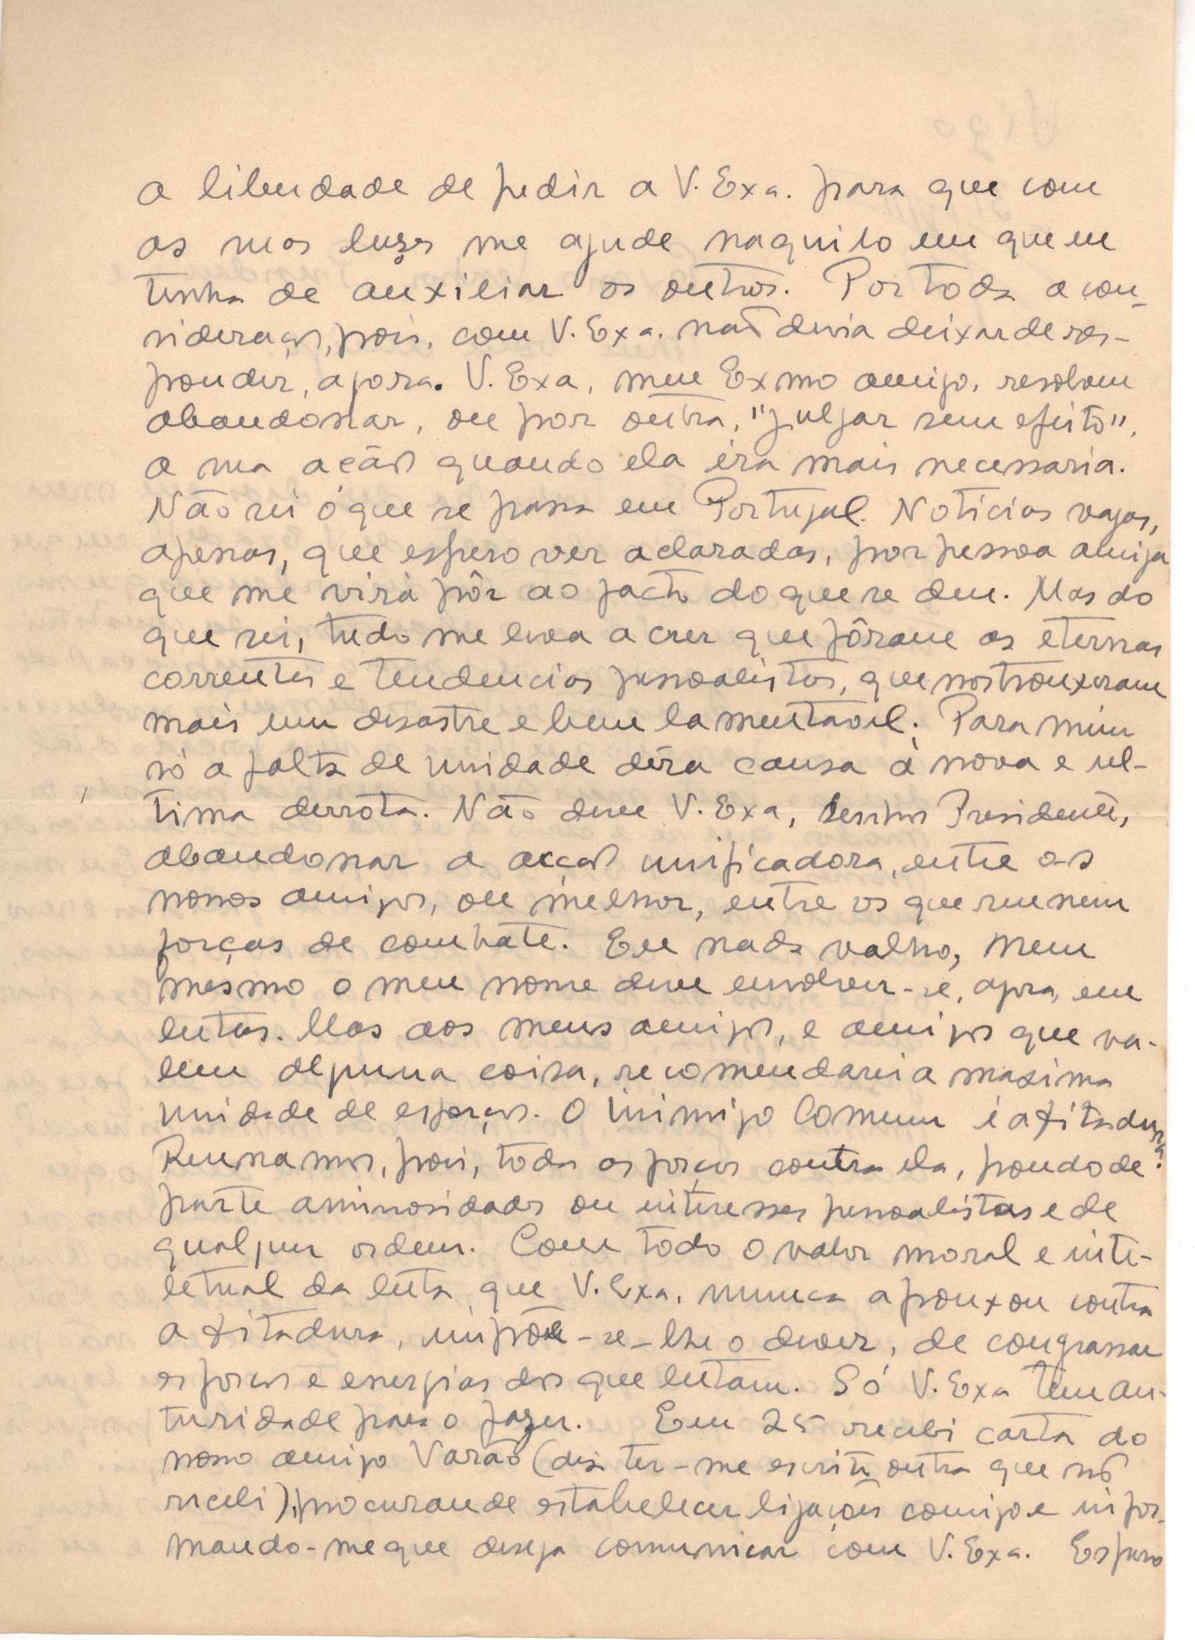 a liberdade de pedir a V. Exa. para que com
as suas luzes me ajude naquilo em que eu
tinha de auxiliar os outros. Por toda a con-
sideração, pois, com V. Exa. não devia deixar de res-
ponder, agora. V. Exa, meu Exmo amigo, resolveu
abandonar, ou por outra, "julgar sem efeito",
a sua acão quando ela éra mais necessaria.
Não sei ó que se passa em Portugal. Noticias vagas,
apenas, que espero ver aclaradas, por pessoa amiga
que me virá pôr ao facto do que se deu. Mas do
que sei, tudo me leva a crer que fôram as eternas
correntes e tendencias pessoalistas, que nos trouxeram
mais um desastre e bem lamentavel. Para mim
só a falta de unidade déra causa à nova e ul-
tima derrota. Não deve V. Exa, Senhor Presidente,
abandonar a acção unificadora, entre os
nossos amigos, ou melhor, entre os que reunem
forças de combate. Eu nada valho, nem
mesmo o meu nome deve envolver-se, agora, em
lutas. Mas aos meus amigos, e amigos que va-
lem alguma coisa, recomendaria a maxima
unidade de esforços. O inimigo comum é a ditadura.
Reunamos, pois, todas as forças contra ela, pondo de
parte animosidades ou interesses pessoalistas e de
qualquer ordem. Com todo o valor moral e inte-
letual da luta que V. Exa. nunca afrouxou contra
a ditadura, impõe-se-lhe o dever, de congrassar
esforços e energias dos que lutam. Só V. Exa tem au-
turidade para o fazer. Em 25 recebi carta do
nosso amigo Varão (diz ter-me escrito outra que não
recebi), procurando estabelecer ligações comigo e infor-
mando-me que deseja comunicar com V. Exa. Espero